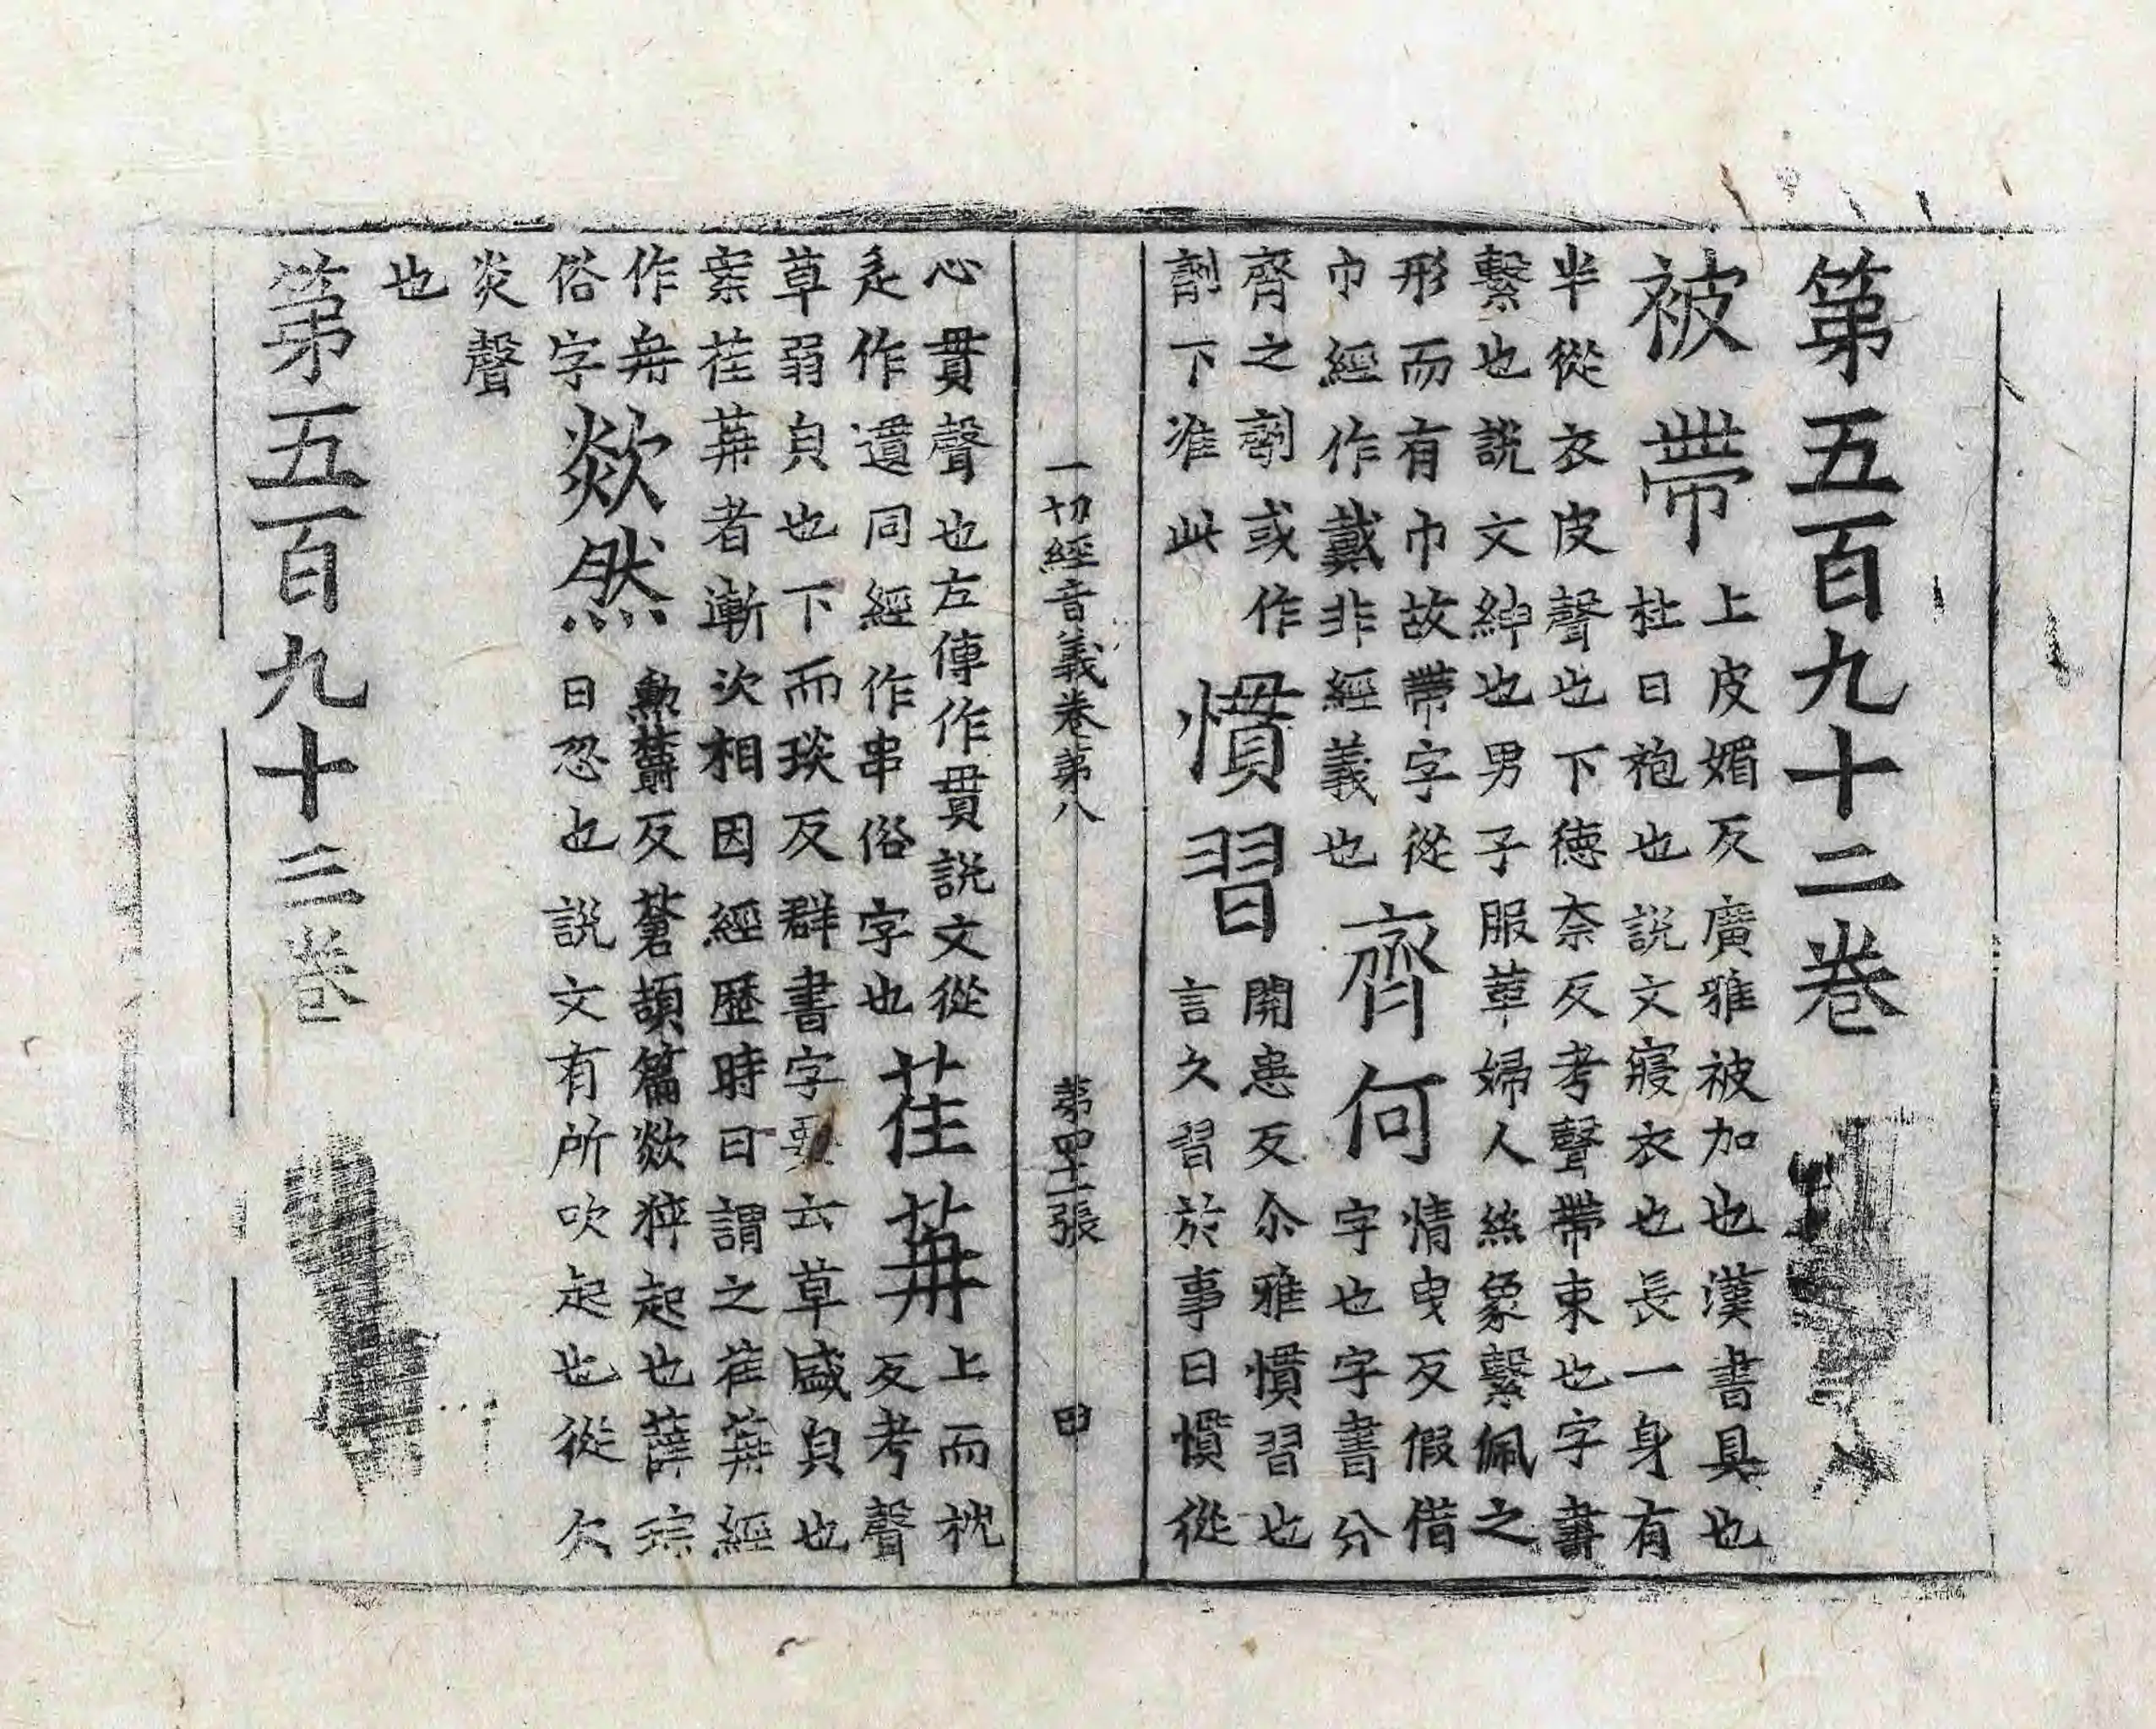 第五百九十二卷
被帶
上皮媚反廣雅被加也漢書具也
杜曰袍也説文寢衣也長一身有
半從衣皮聲也下德奈反考聲帶束也字書
繫也說文紳也男子服革婦人絲象繫佩之
形而有巾故帶字從
巾經作戴非經義也
齊何
情曳反假借
字也字書分
齊之劑或作
劑下准此
慣習
關患反尒雅慣習也
言久習於事曰慣從
一切經音義卷第八 第四十二張 田
心貫聲也左傳作貫說文從
辵作遺同經作串俗字也
荏苒
上而枕
反考聲
草弱皃也下而琰反群書字要云草盛皃也
案荏苒者漸次相因經歷時日謂之荏苒經
作苒
俗字
歘然
勳欝反蒼頡篇歘猝起也薛琮
曰忽也說文有所吹起也從欠
炎聲
也
第五百九十三卷